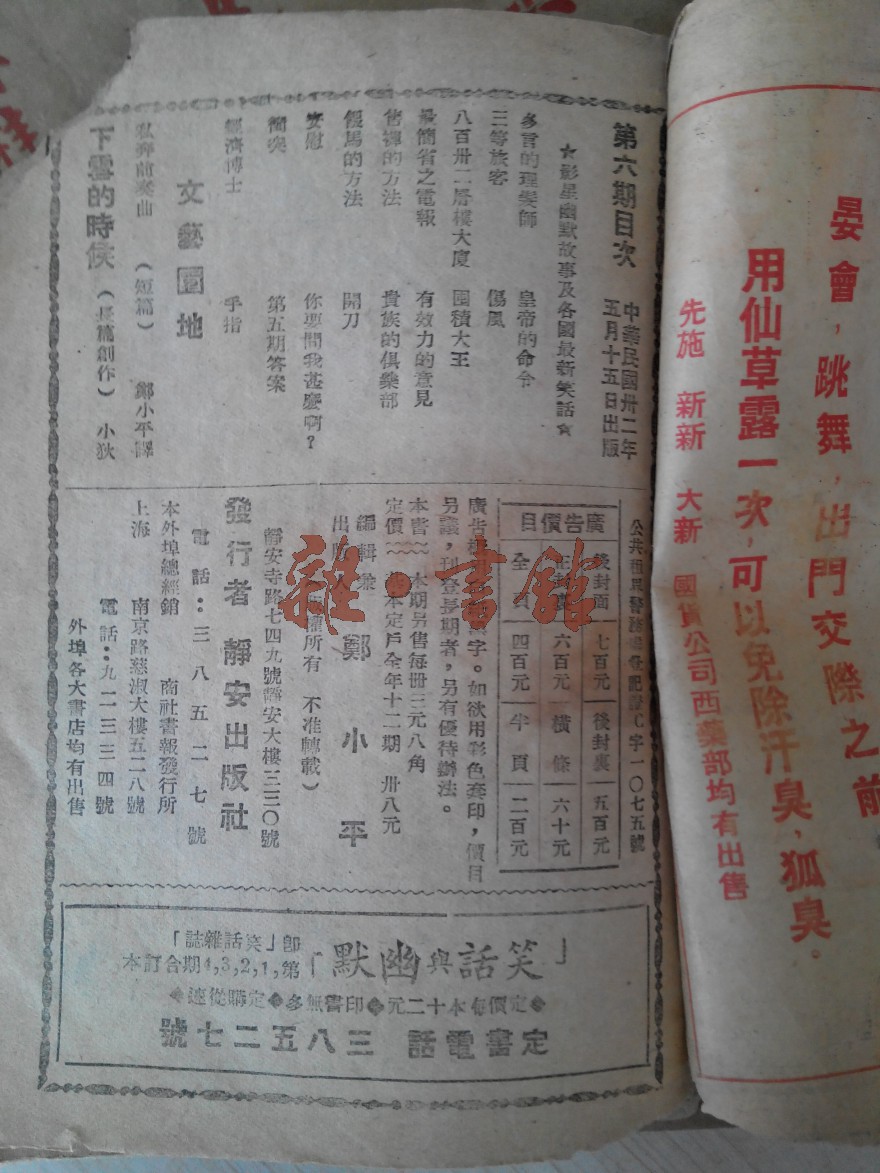 第六期目次
中華民國卅二年
五月十五日出版
★影星幽默故事及各國最新笑話★
多言的理髮師　皇帝的命令
三等旅客　傷風
八百卅二層樓大度　囤積大王
最簡省之電報　有效力的意見
的方法　貴族的俱樂部
馬的方法　開刀
安慰　你要問我甚麼啊？
衝突　第五期答案
經濟博士　手指
文藝園地
私奔前奏曲　（短篇）　鄭小平譯
下雲的時候　（長篇創作）　小狄
公共租界警務處登記證C字一〇七五號
廣告價目
後封面　七百元　後封裏　五百元
正封裏　六百元　橫條　六十元
全頁　四百元　半頁　二百元
字。如欲用彩色套印，價目
另議，刊登長期者，另有優待辦法。
本書　本期另售每冊三元八角
定價　本定戶全年十二期　卅八元
編輯兼
出版人　鄭小平
所有　不准轉載）
靜安寺路七四九號靜安大樓三三〇號
發行者　靜安出版社
電話：三八五二七號
本外埠總經銷　南社書報發行所
上海　南京路慈淑大樓五二八號
電話：九二三三四號
外埠各大書店均有出售
「笑話與幽默」
即「笑話雜誌」
第1,2,3,4期合訂本
◆定價每本十二元◆印書無多◆定購從速◆
定書電話　三八五二七號
雜·書館
晏會，跳舞，出門交際之前
用仙草露一次，可以免除汗臭，狐臭。
先施　新新　大新　國貨公司西藥部均有出售